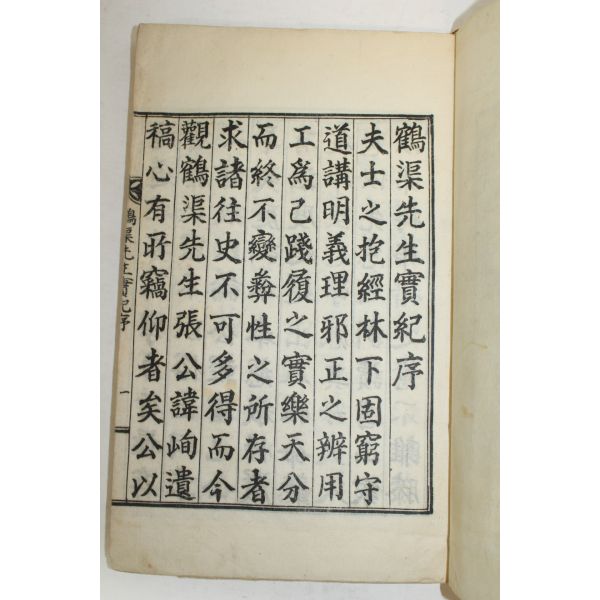 鶴渠先生實紀序
夫士之抱經林下固窮守
道講明義理邪正之辨用
工爲己踐履之實樂天分
而終不變彜性之所存者
求諸往史不可多得而今
觀鶴渠先生張公諱峋遺
稿心有所竊仰者矣公以
鶴渠先生實紀序
一